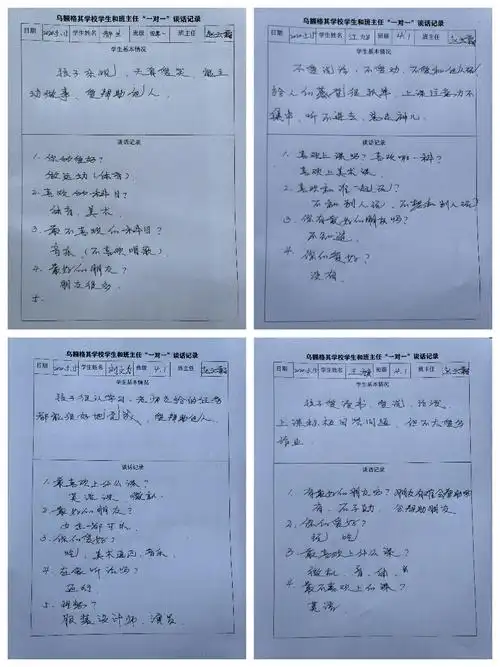 乌额格其学校学生和班主任“一对一”谈话记录
日期 学生姓名 班级 班主任
学生基本情况
孩子乐观，天真爱笑，能主
动做事，爱帮助他人。
谈话记录
1. 你的爱好？
做运动（体育）
2. 喜欢的科目？
体育、美术
3. 最不喜欢的科目？
音乐（不喜欢唱歌）
4. 最好的朋友？
朋友很多
5.
乌额格其学校学生和班主任“一对一”谈话记录
日期 学生姓名 班级 4.1 班主任
学生基本情况
不爱说话，不爱动，不爱和他人
给人们感觉很孤单，上课注意力不
集中，听不进去，
谈话记录
1. 喜欢上课吗？喜欢哪一科？
喜欢上美术课
2. 喜欢和谁一起玩？
不和别人玩，不想和别人玩
3. 你有最好的朋友吗？
不知道
4. 你的爱好？
没有
乌额格其学校学生和班主任“一对一”谈话记录
日期 学生姓名 班级 4.1 班主任
学生基本情况
孩子很认学习，老师交给的任务
都能很好地完成，爱帮助他人。
谈话记录
1. 最喜欢上什么课？
英语课
2. 最好的朋友？
3. 你的爱好？
吃、美术、音乐
4. 在家听话吗？
还好
5. 理想？
服装设计师、演员
乌额格其学校学生和班主任“一对一”谈话记录
日期 学生姓名 班级 4.1 班主任
学生基本情况
孩子爱读书，爱说，活泼，
上课积极回答问题，但不大爱写
作业
谈话记录
1. 有最好的朋友吗？朋友有难会帮助吗
有，会帮助朋友
2. 你的爱好？
玩、吃
3. 最喜欢上什么课？
微机、音、体、
4. 最不喜欢上的课？
英语